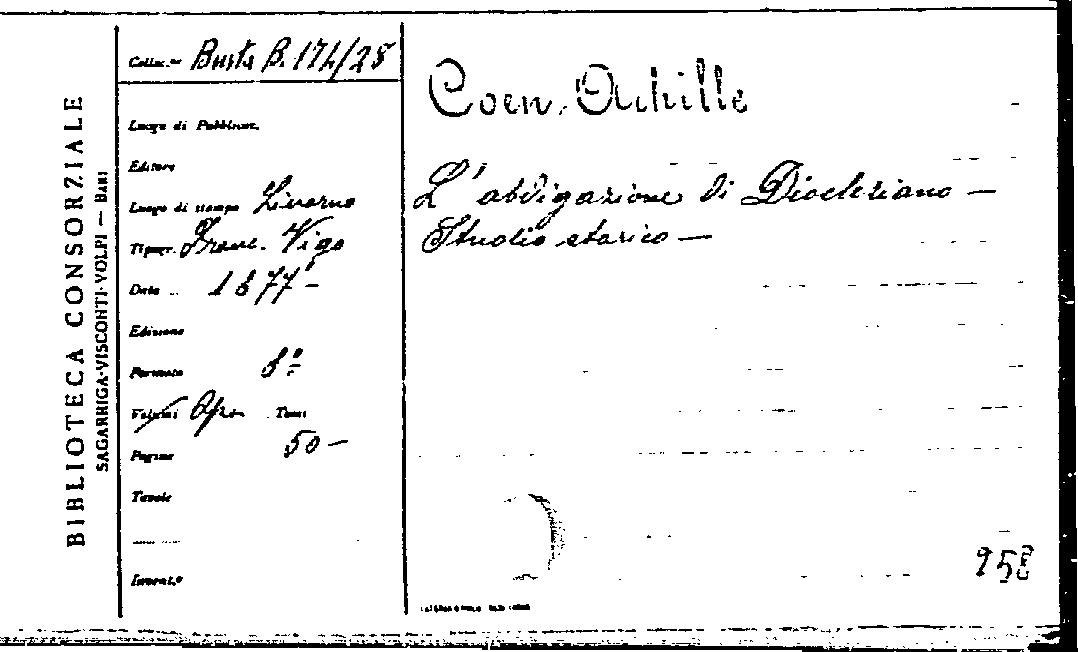 BIBLIOTECA CONSORZIALE
SAGARRIGA-VISCONTI-VOLPI — BARI
Colloc.ne Busta B. 174/28
Luogo di Pubblicaz.
Editore
Luogo di stampa Livorno
Tipogr. Franc. Vigo
Data .. 1877 -
Edizione
Formato 8º -
Volumi Opo. Tomi
Pagine 50 -
Tavole
Invent.º
Coen, Achille
L'abdigazione di Diocleziano —
Studio storico —
958